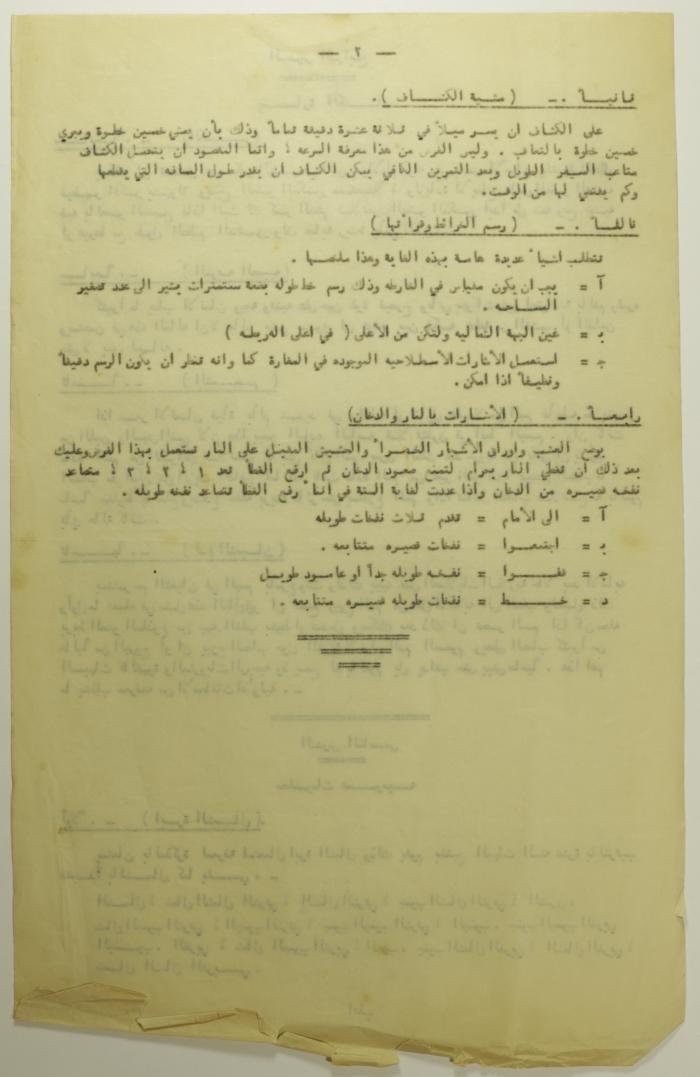 — ٢ —
ثانيــاً . ـ ( مشية الكشـــاف ) .
على الكشاف ان يسير ميلاً في ثلاثة عشرة دقيقة تماماً وذلك بأن يمشي خمسين خطوة ويجري
خمسين خطوة بالتعاقب . وليس الغرض من هذا معرفة السرعه ؛ وانما المقصود ان يتحمل الكشاف
متاعب السفر الطويل وبعد التمرين الكافي يمكن الكشاف ان يقدر طول المسافه التي يقطعها
وكم يقتضي لها من الوقت .
ثالثــاً . ـ ( رسم الخرائط وقرائتها )
تتطلب اشياءً عديدة خاصة بهذه الغاية وهذا ملخصها .
آ = يجب ان يكون مقياس في الخارطه وذلك رسم خط طوله بضعة سنتمترات يشير الى عدد تصغير
المســاحه .
ب = عين الجهة الشماليه ولتكن من الأعلى ( في اعلى الخريطه )
ج = استعمل الأشارات الأصطلاحيه الموجوده في المفارة كما وانه تنظر ان يكون الرسم دقيقاً
ونظيفاً اذا امكن .
رابعــاً . ـ ( الأشــارات بالنار والدخان )
يوضع العشب واوراق الأشجار الخضراءً والحشيش المبتل على النار تستعمل بهذا الغرض وعليك
بعد ذلك ان تغطي النار بحرام لتمنع صعود الدخان ثم ارفع الغطاً تعد ١ ؛ ٢ ؛ ٣ ؛ فتصاعد
نفخه قصيره من الدخان واذا عددت لغاية الستة في اثناءً رفع الغطاً تتصاعد نفخه طويله .
آ = الى الأمام = تقدم ثلاث نفخات طويله
ب = اجتمعــوا = نفخات قصيره متتابعه .
ج = تفــــوا = نفــخه طويله جداً او عامــود طويــل
د = خــــطـ = نفخات طويله قصيــره متتابعه .